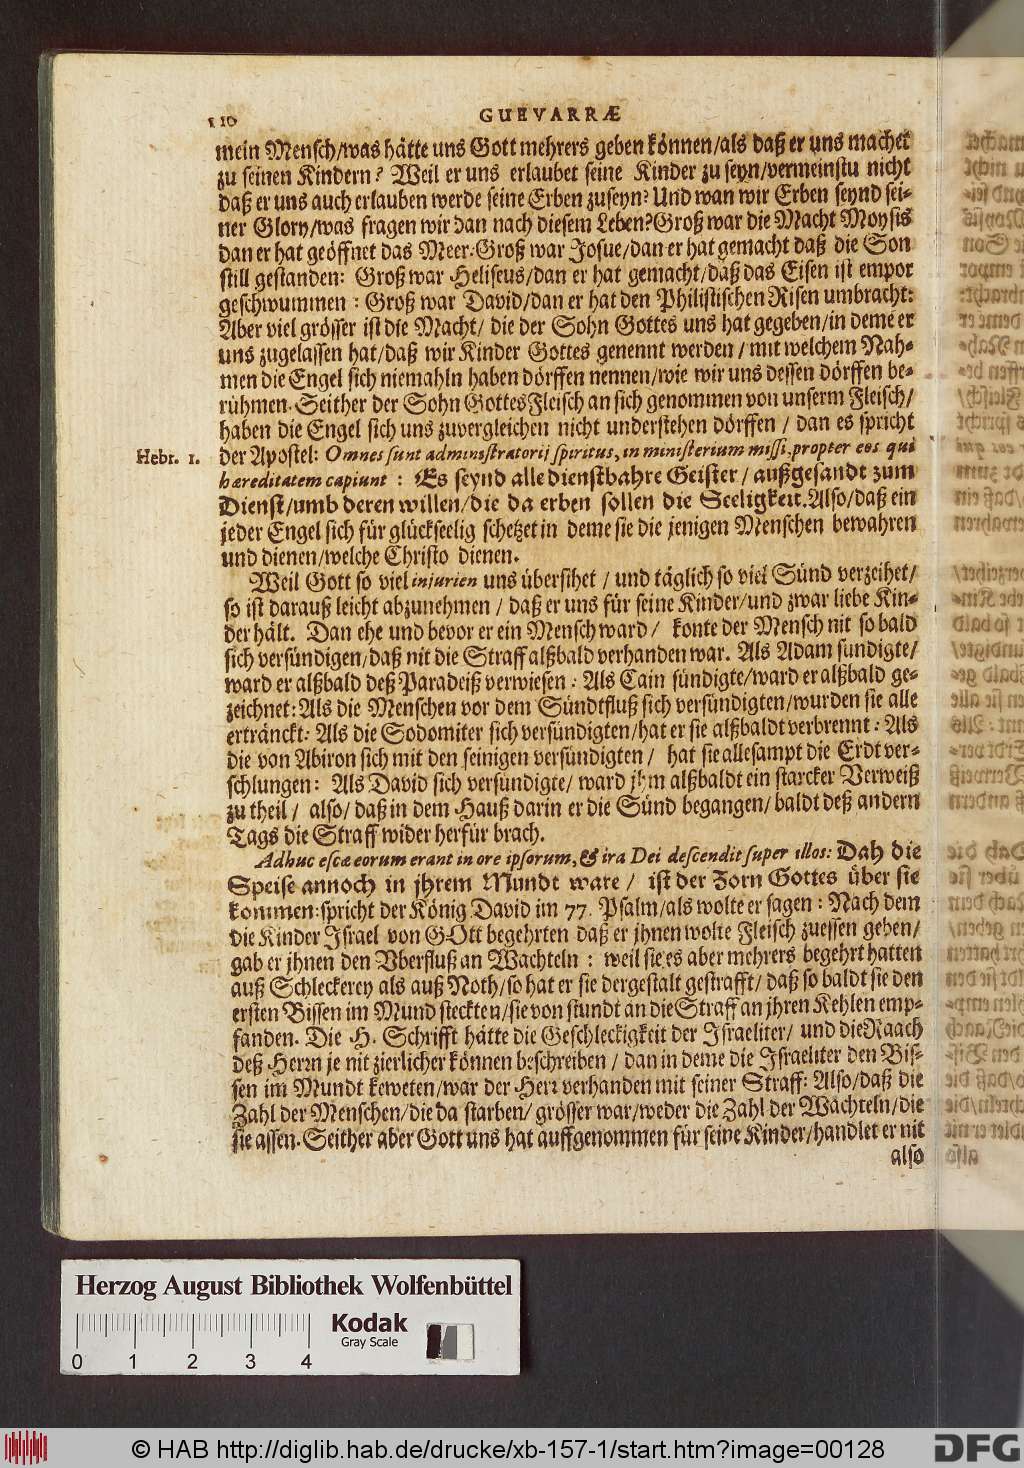 110 GUEVARRÆ
mein Mensch/was hätte uns Gott mehrers geben können/als daß er uns machet
zu seinen Kindern? Weil er uns erlaubet seine Kinder zu seyn/vermeinstu nicht
daß er uns auch erlauben werde seine Erben zuseyn? Und wan wir Erben seynd sei-
ner Glory/was fragen wir dan nach diesem Leben? Groß war die Macht Moysis
dan er hat geöffnet das Meer: Groß war Josue/dan er hat gemacht daß die Son
still gestanden: Groß war Heliseus/dan er hat gemacht/daß das Eisen ist empor
geschwummen: Groß war David/dan er hat den Philistischen Risen umbracht:
Aber viel grösser ist die Macht/ die der Sohn Gottes uns hat gegeben/in deme er
uns zugelassen hat/daß wir Kinder Gottes genennt werden/mit welchem Nah-
men die Engel sich niemahln haben dörffen nennen/wie wir uns dessen dörffen be-
rühmen. Seither der Sohn Gottes Fleisch an sich genommen von unserm Fleisch/
haben die Engel sich uns zuvergleichen nicht understehen dörffen / dan es spricht
Hebr. 1. der Apostel: Omnes sunt administratorij spiritus, in ministerium missi, propter eos qui
hæreditatem capiunt : Es seynd alle dienstbahre Geister/außgesandt zum
Dienst/umb deren willen/die da erben sollen die Seeligkeit. Also/daß ein
jeder Engel sich für glückseelig schetzet in deme sie die jenigen Menschen bewahren
und dienen/welche Christo dienen.
Weil Gott so viel injurien uns übersihet / und täglich so viel Sünd verzeihet/
so ist darauß leicht abzunehmen / daß er uns für seine Kinder/und zwar liebe Kin-
der hält. Dan ehe und bevor er ein Mensch ward/ konte der Mensch nit so bald
sich versündigen/daß nit die Straff alßbald verhanden war. Als Adam sündigte/
ward er alßbald deß Paradeiß verwiesen: Als Cain sündigte/ward er alßbald ge-
zeichnet: Als die Menschen vor dem Sündtfluß sich versündigten/wurden sie alle
ertränckt: Als die Sodomiter sich versündigten/hat er sie alßbaldt verbrennt: Als
die von Abiron sich mit den seinigen versündigten/ hat sie allesampt die Erdt ver-
schlungen: Als David sich versündigte/ ward jhm alßbaldt ein starcker Verweiß
zu theil/ also/ daß in dem Hauß darin er die Sünd begangen/ baldt deß andern
Tags die Straff wider herfür brach.
Adhuc escæ eorum erant in ore ipsorum, & ira Dei descendit super illos: Dah die
Speise annoch in jhrem Mundt ware/ ist der Zorn Gottes über sie
kommen: spricht der König David im 77. Psalm/als wolte er sagen: Nach dem
die Kinder Israel von GOtt begehrten daß er jhnen wolte Fleisch zuessen geben/
gab er jhnen den Vberfluß an Wachteln : weil sie es aber mehrers begehrt hatten
auß Schleckerey als auß Noth/so hat er sie dergestalt gestrafft/ daß so baldt sie den
ersten Bissen im Mund steckten/sie von stundt an die Straff an jhren Kehlen emp-
fanden. Die H. Schrifft hätte die Geschleckigkeit der Israeliter/ und die Raach
deß Herrn je nit zierlicher können beschreiben / dan in deme die Israeliter den Bis-
sen im Mundt keweten/war der Herr verhanden mit seiner Straff: Also/daß die
Zahl der Menschen/die da starben/ grösser war/weder die Zahl der Wachteln/die
sie assen. Seither aber Gott uns hat auffgenommen für seine Kinder/handlet er nit
also
Herzog August Bibliothek Wolfenbüttel
Kodak
Gray Scale
0 1 2 3 4
© HAB http://diglib.hab.de/drucke/xb-157-1/start.htm?image=00128
DFG